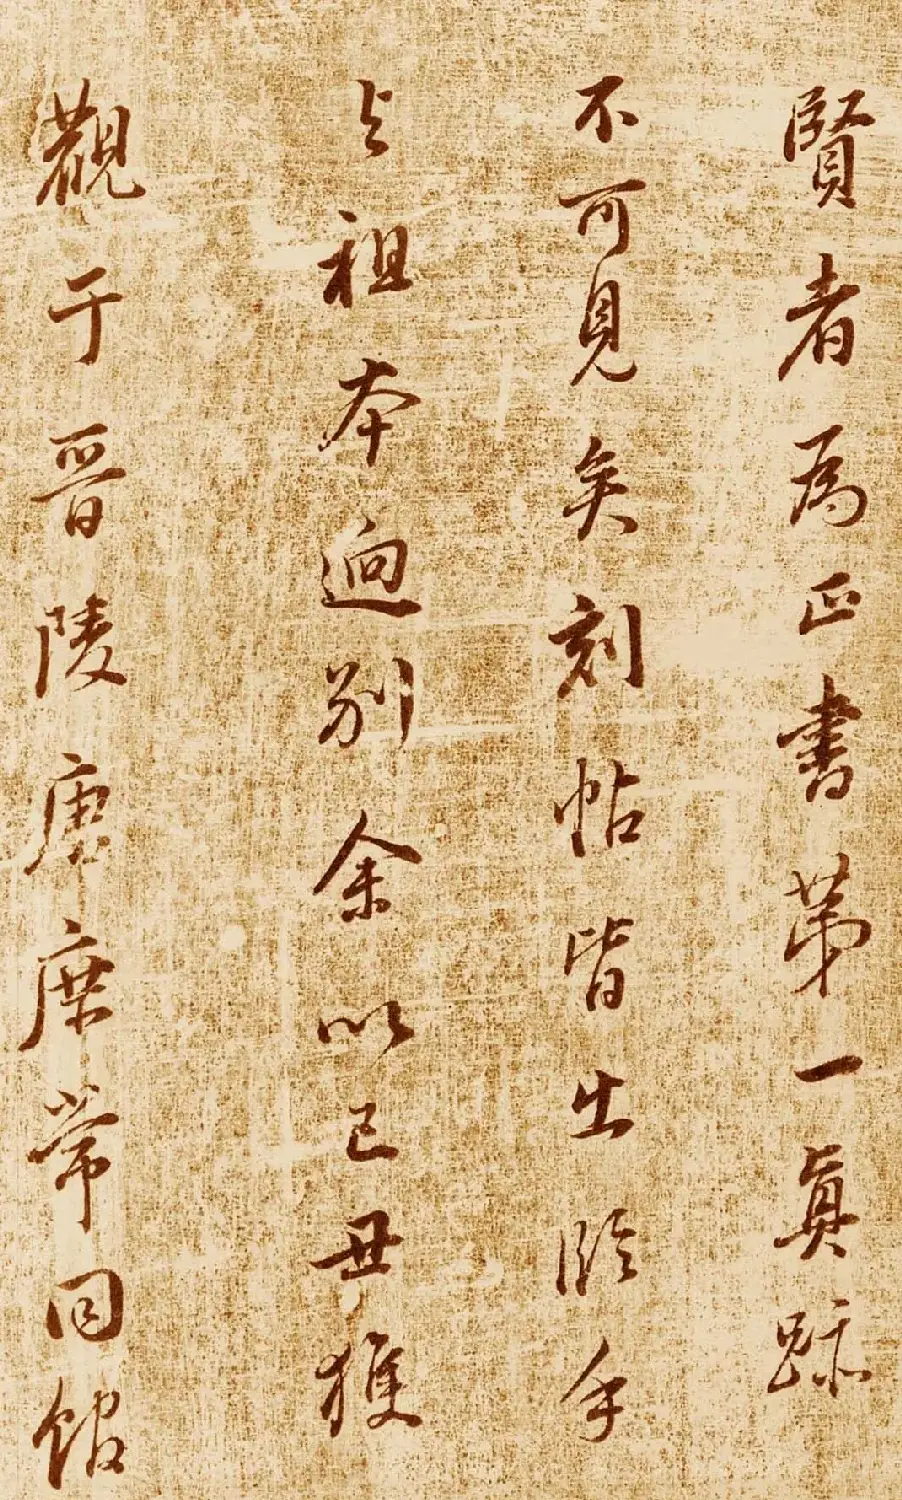 賢者為正書第一真跡
不可見矣刻帖皆出臨手
與祖本迥別余以己丑獲
觀于晉陵唐庶常同館